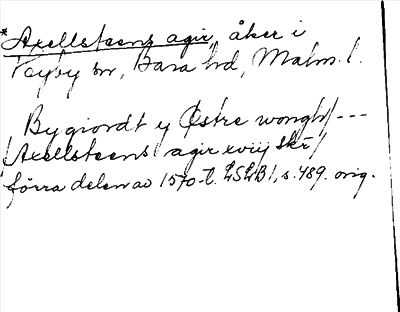 *Axellsteens agir, åker i
sn, Bara hd, Malm. l.
Bygiordt y Østre wongh/---
/Axellsteens agir xviij skr/
förra delen av 1570-t. LSLB1, s. 489. orig.